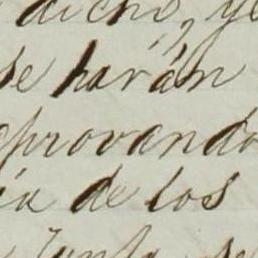 dicho, ye
se harán
aprovando
ia de los
Junta se